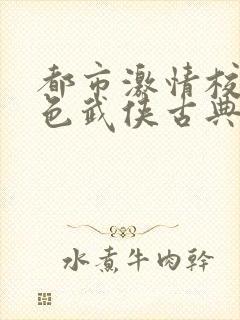 都市激情校
色武侠古典
水煮牛肉幹